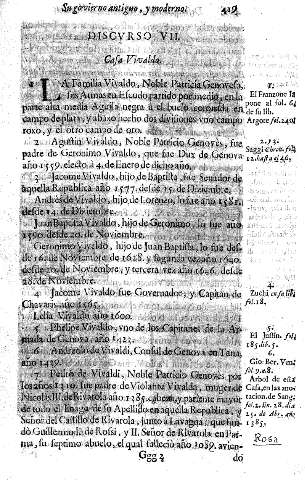 Su govierno antiguo, y moderno. 419
DISCVRSO VII.
Casa Vivalda.
LA Familia Vivaldo, Noble Patricia Genovesa,
sus Armas un Escudo partido por medio, en la
parte alta media Aguila negra à el buelo coronada en
campo de plata, y abaxo hecho dos divisiones vno campo
roxo, y el otro campo de oro.
2. Agustin Vivaldo, Noble Patricio Genoves, fue
padre de Geronimo Vivaldo, que fue Dux de Genova
año 1559. electo à 4. de Enero de dicho año.
3. Jacome Vivaldo, hijo de Baptista, fue Senador de
aquella Republica año 1577. desde 25. de Diciembre.
Andrès de Vivaldo, hijo de Lorenço, lo fue año 1581.
desde 14. de Diciembre.
Juan Baptista Vivaldo, hijo de Geronimo, lo fue año
de Noviembre.
Geronimo Vivaldo, hijo de Juan Baptista, lo fue des-
de 16. de Noviembre de 1628. y segunda vez año 1640.
desde de Noviembre, y tercera vez año 1646. desde
28. de Noviembre.
4. Jacome Vivaldo fue Governador, y Capitan de
Chavari, año 1565.
Lelia Vivaldo año 1600.
5. Phelipe Vivaldo, vno de los Capitanes de la Ar-
mada de Genova, año 1423.
6. Andreolo de Vivaldi, Consul de Genova en Tana,
año
7. Pedro de Vivaldi, Noble Patricio Genoves por
los años 1210. fue padre de Violante Vivalda, muger de
Nicolò III. de Rivarola año 1285. que, y pariente mayor
de todo el Linage de su Apellido en aquella Republica, y
Señor del Castillo de Rivarola, junto à Lavagna, que fun-
dò Guillermo de Rossi, y II. Señor de Rivarola en Par-
ma, su septimo abuelo, el qual falleciò año 1039. avien-
Ggg 2 do
1.
El Franzone im
pone al fol. 6
de su lib.
Argote fol. 240.
2. 3.
4.
fol. 18.
5.
El Justin. fol.
185. dis. 5.
6.
Gio. Ber. Ven.
fol. 9. 68.
Arbol de esta
Casa, en las ano
tacion. de Sang.
1385.
Rosa